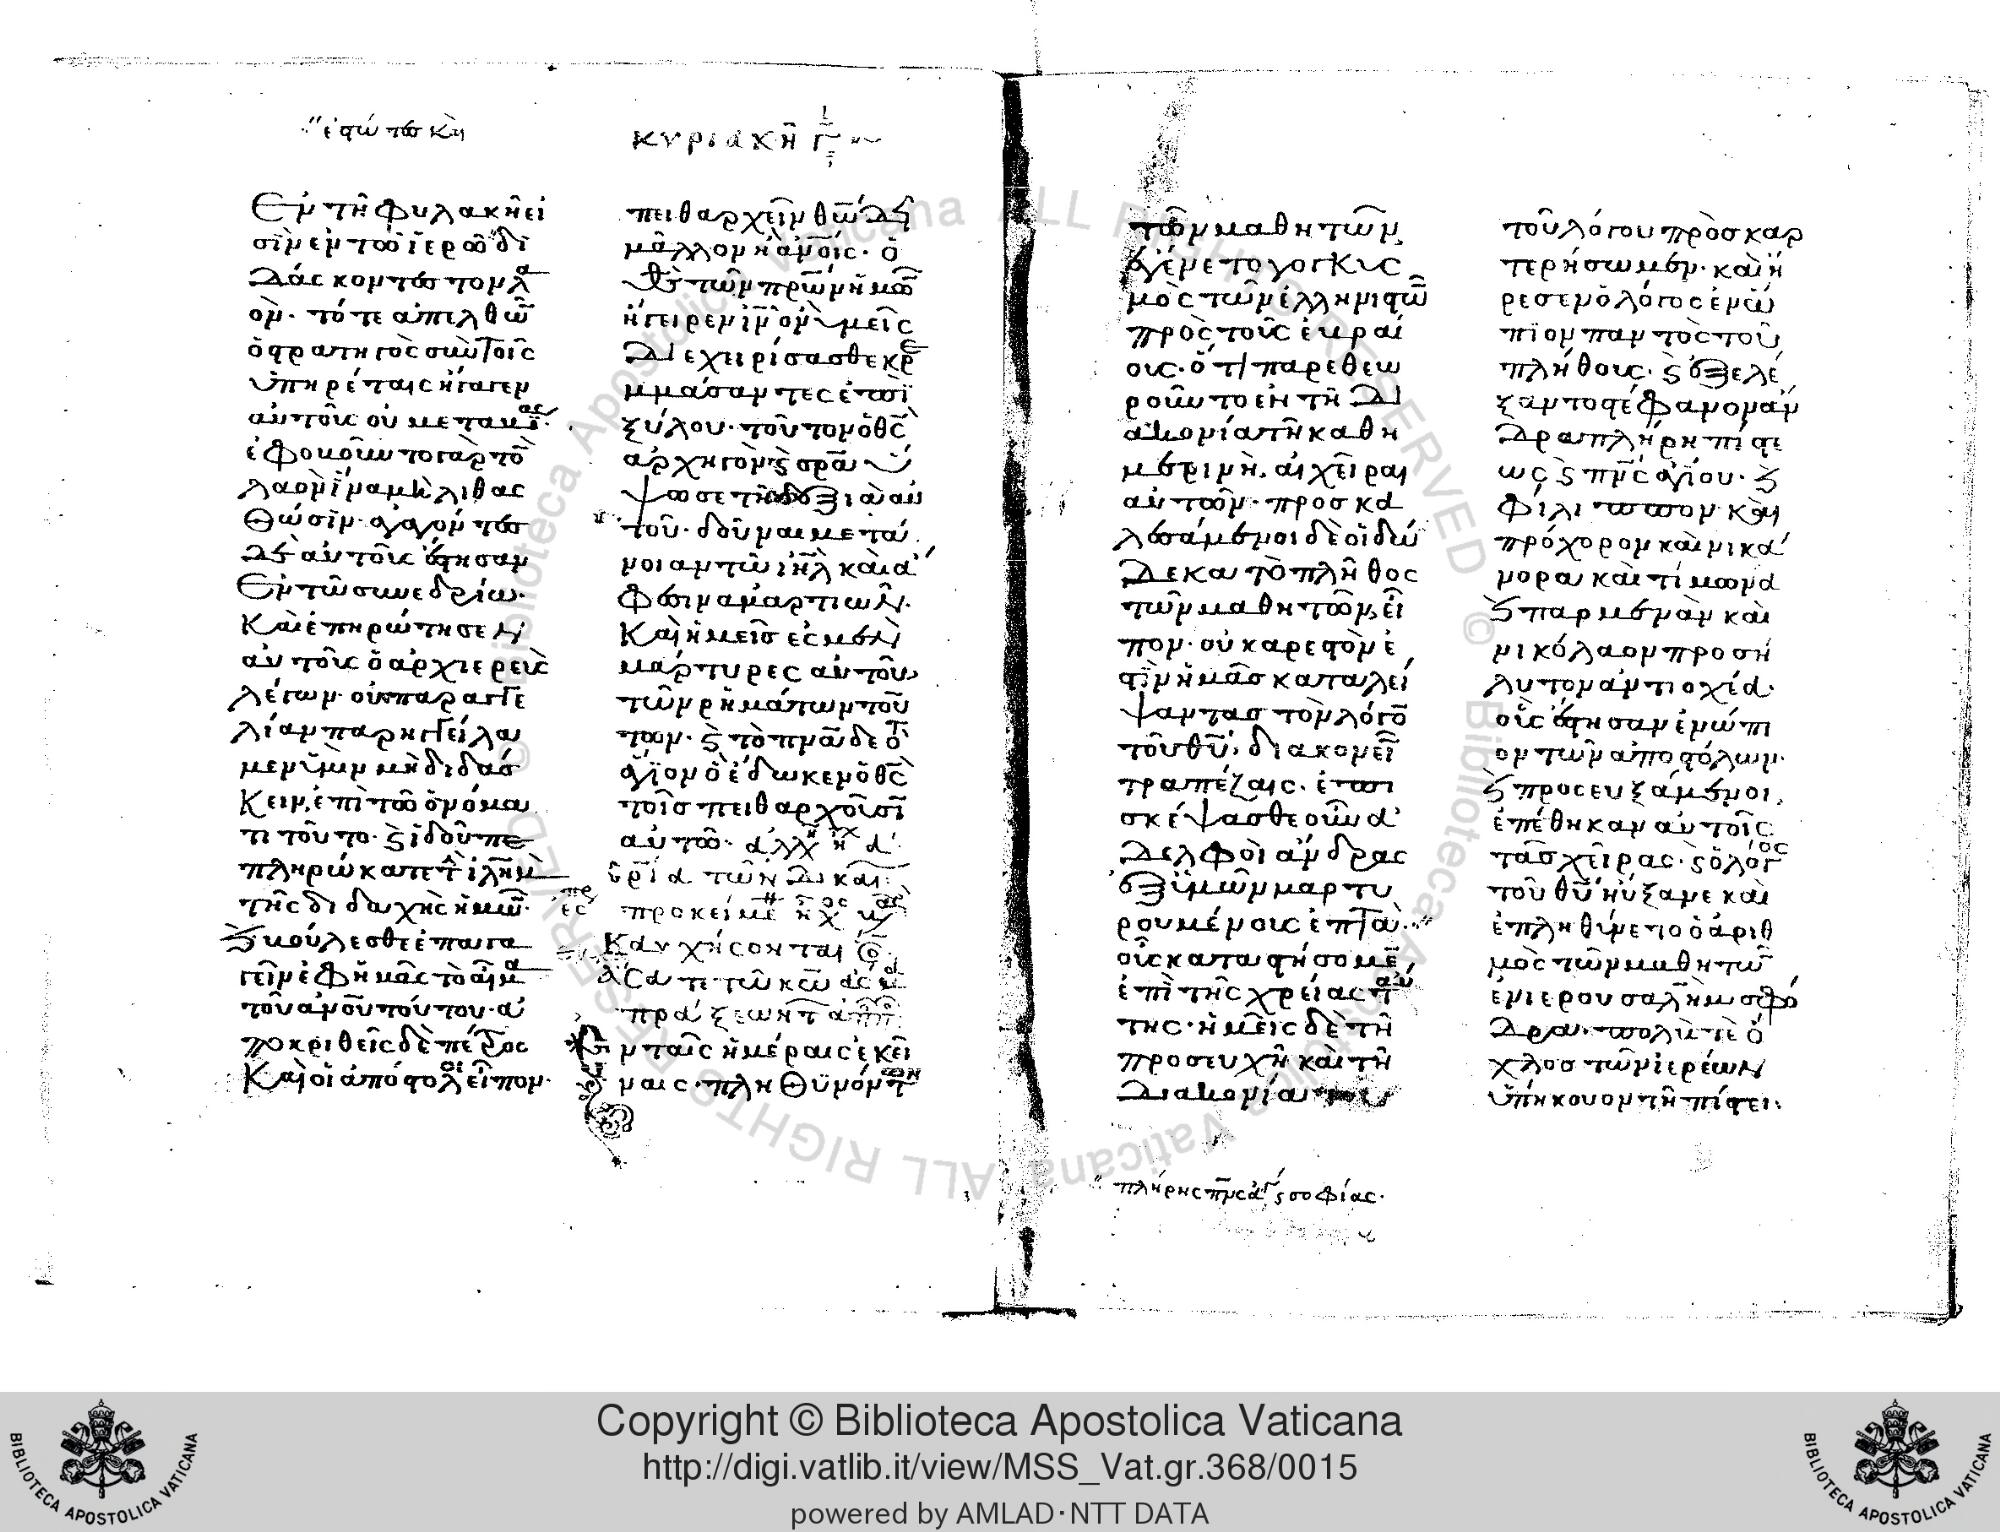 ἑστῶτες καὶ
Ἐν τῆ φυλακῆ εἰ
σὶν ἐν τῶ ἱερῶ δι
δάσκοντες τὸν λα
όν· τότε ἀπελθὼ̅
ὁ στρατηγὸς σὺν τοῖς
ὑπηρέταις ἤγαγεν
αὐτοὺς οὐ μετα βίας·
ἐφοβοῦντο γὰρ τὸ̅
λαὸν ἵνα μὴ λιθας
θῶσιν· ἀγαγόντες
δὲ αὐτοὺς ἔστησαν
Ἐν τῶ συνεδρίω·
Καὶ ἐπηρώτησεν
αὐτοὺς ὁ ἀρχιερεὺς
λέγων· οὐ παραγγε
λίαν παρηγγείλα
μεν ὑμῖν μὴ διδάσ
κειν ἐπὶ τῶ ὀνόμα
τι τούτο· ϗ ἰδοὺ πε
πληρώκατε τ ιλημ
τῆς διδαχῆς ἡμῶ̅·
ϗ βούλεσθε ἐπαγα
γεῖν ἐφ ἡμᾶς τὸ αἷμα
τοῦ ανου τούτου· ἀ
ποκριθεὶς δὲ πέτρος
Καὶ οἱ ἀπόστολοι εἶπον·
κυριακῆ γ
πειθαρχεῖν θῶ δεῖ
μᾶλλον ἢ ανοις· ὁ
θς τῶν πρων ἡμῶ̅
ἤγειρεν ιν ὃν ὑμεῖς
διεχειρίσασθε κρε
μμάσαντες ἐπὶ
ξύλου· τοῦτον ὁ θς
ἀρχηγὸν ϗ σρα ὕ
ψωσε τῆ δεξιᾶ αὐ
τοῦ· δοῦναι μετά
νοιαν τῶ ιηλ καὶ ἄ
φεσιν ἁμαρτιῶν·
Καὶ ἡμεῖς ἐσμὲν
μάρτυρες αὐτοῦ
τῶν ῥημάτων τού
των· ϗ τὸ πνα δὲ τὸ
ἅγιον ὃ ἔδωκεν ὁ θς
τοῖς πειθαρχοῦσϊ
αὐτῶ·
προκείμε ἦχ
Καυχήσονται
ᾄσατε τῶ κω
πράξεων τ
Ἐν ταῖς ἡμέραις ἐκεί
ναις· πληθυνόντων
τῶν μαθητῶν
ἐγένετο γογγυς
μὸς τῶν ἑλληνιστῶ̅
πρὸς τοὺς ἑβραί
ους· ὅτι παρεθεω
ροῦντο ἐν τῆ δι
ακονία τῆ καθη
μερινῆ. αἱ χεῖραι
αὐτῶν· προσκα
λεσάμενοι δὲ οἱ δώ
δεκα τὸ πλῆθος
τῶν μαθητῶν, εἶ
πον· οὐκ ἀρεστὸν ἐ
στὶν ἡμᾶς καταλεί
ψαντας τὸν λόγο̅
τοῦ θυ, διακονεῖ̅
τραπέζαις. ἐπι
σκέψασθε οὖν ἀ
δελφοὶ ἄνδρας
ἐξ ὑμῶν μαρτυ
ρουμένους ἑπτὰ·
οὓς καταστήσομε̅
ἐπὶ τῆς χρείας ταύ
της· ἡμεῖς δὲ τῆ
προσευχῆ καὶ τῆ
διακονία του
πλήρης πνς ἁγ ϗ σοφίας·
τοῦ λόγου προσκαρ
τερήσωμεν· καὶ ἤ
ρεσεν ὁ λόγος ἐνώ
πϊον παντὸς τοῦ
πλήθους· ϗ ἐξελέ
ξαντο στέφανον ἄν
δρα πλήρη πίστε
ως ϗ πνς ἁγίου· ϗ
φίλιππον καὶ
πρόχορον καὶ νικά
νορα καὶ τίμωνα
ϗ παρμενὰν καὶ
νικόλαον προσή
λυτον ἀντιοχέα·
οὓς ἔστησαν ἐνώπι
ον τῶν ἀποστόλων·
ϗ προσευξάμενοι,
ἐπέθηκαν αὐτοῖς
τὰς χεῖρας· ϗ ὁ λόγος
τοῦ θυ ηὔξανε καὶ
ἐπληθύνετο ὁ ἀριθ
μὸς τῶν μαθητῶ̅
ἐν ιερουσαλὴμ σφό
δρα· πολύ τε ὁ
χλος τῶν ἱερέων
ὑπήκουον τῆ πίστει·
Copyright © Biblioteca Apostolica Vaticana
http://digi.vatlib.it/view/MSS_Vat.gr.368/0015
powered by AMLAD·NTT DATA
BIBLIOTECA APOSTOLICA VATICANA
BIBLIOTECA APOSTOLICA VATICANA